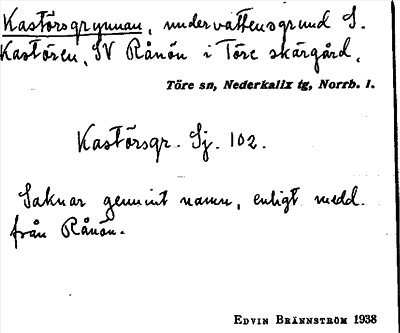 Kastörsgrynnan, undervattensgrund S.
Kastören, SV Rånön i Töre skärgård.
Töre sn, Nederkalix tg, Norrb. l.
Kastörsgr. Sj. 102.
Saknar genuint namn, enligt medd.
från Rånön.
EDVIN BRÄNNSTRÖM 1938